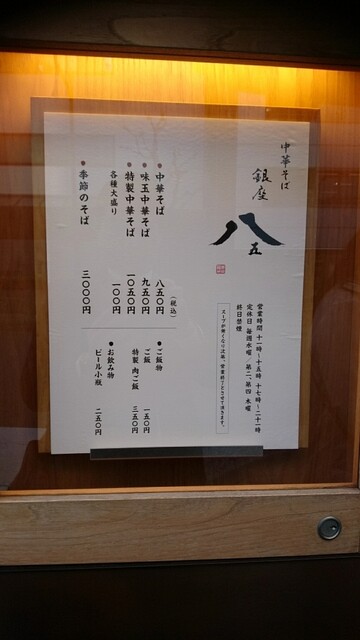 中華そば
銀座
八五
営業時間 十一時〜十五時 十七時〜二十一時
定休日 毎週水曜/第二、第四 木曜
終日禁煙
スープが無くなり次第、営業終了とさせて頂きます。
(税込)
中華そば 八五〇円
味玉中華そば 九五〇円
特製中華そば 一〇五〇円
各種大盛り 一〇〇円
季節のそば 三〇〇〇円
ご飯物
ご飯 一五〇円
特製 肉ご飯 三五〇円
お飲み物
ビール小瓶 二五〇円